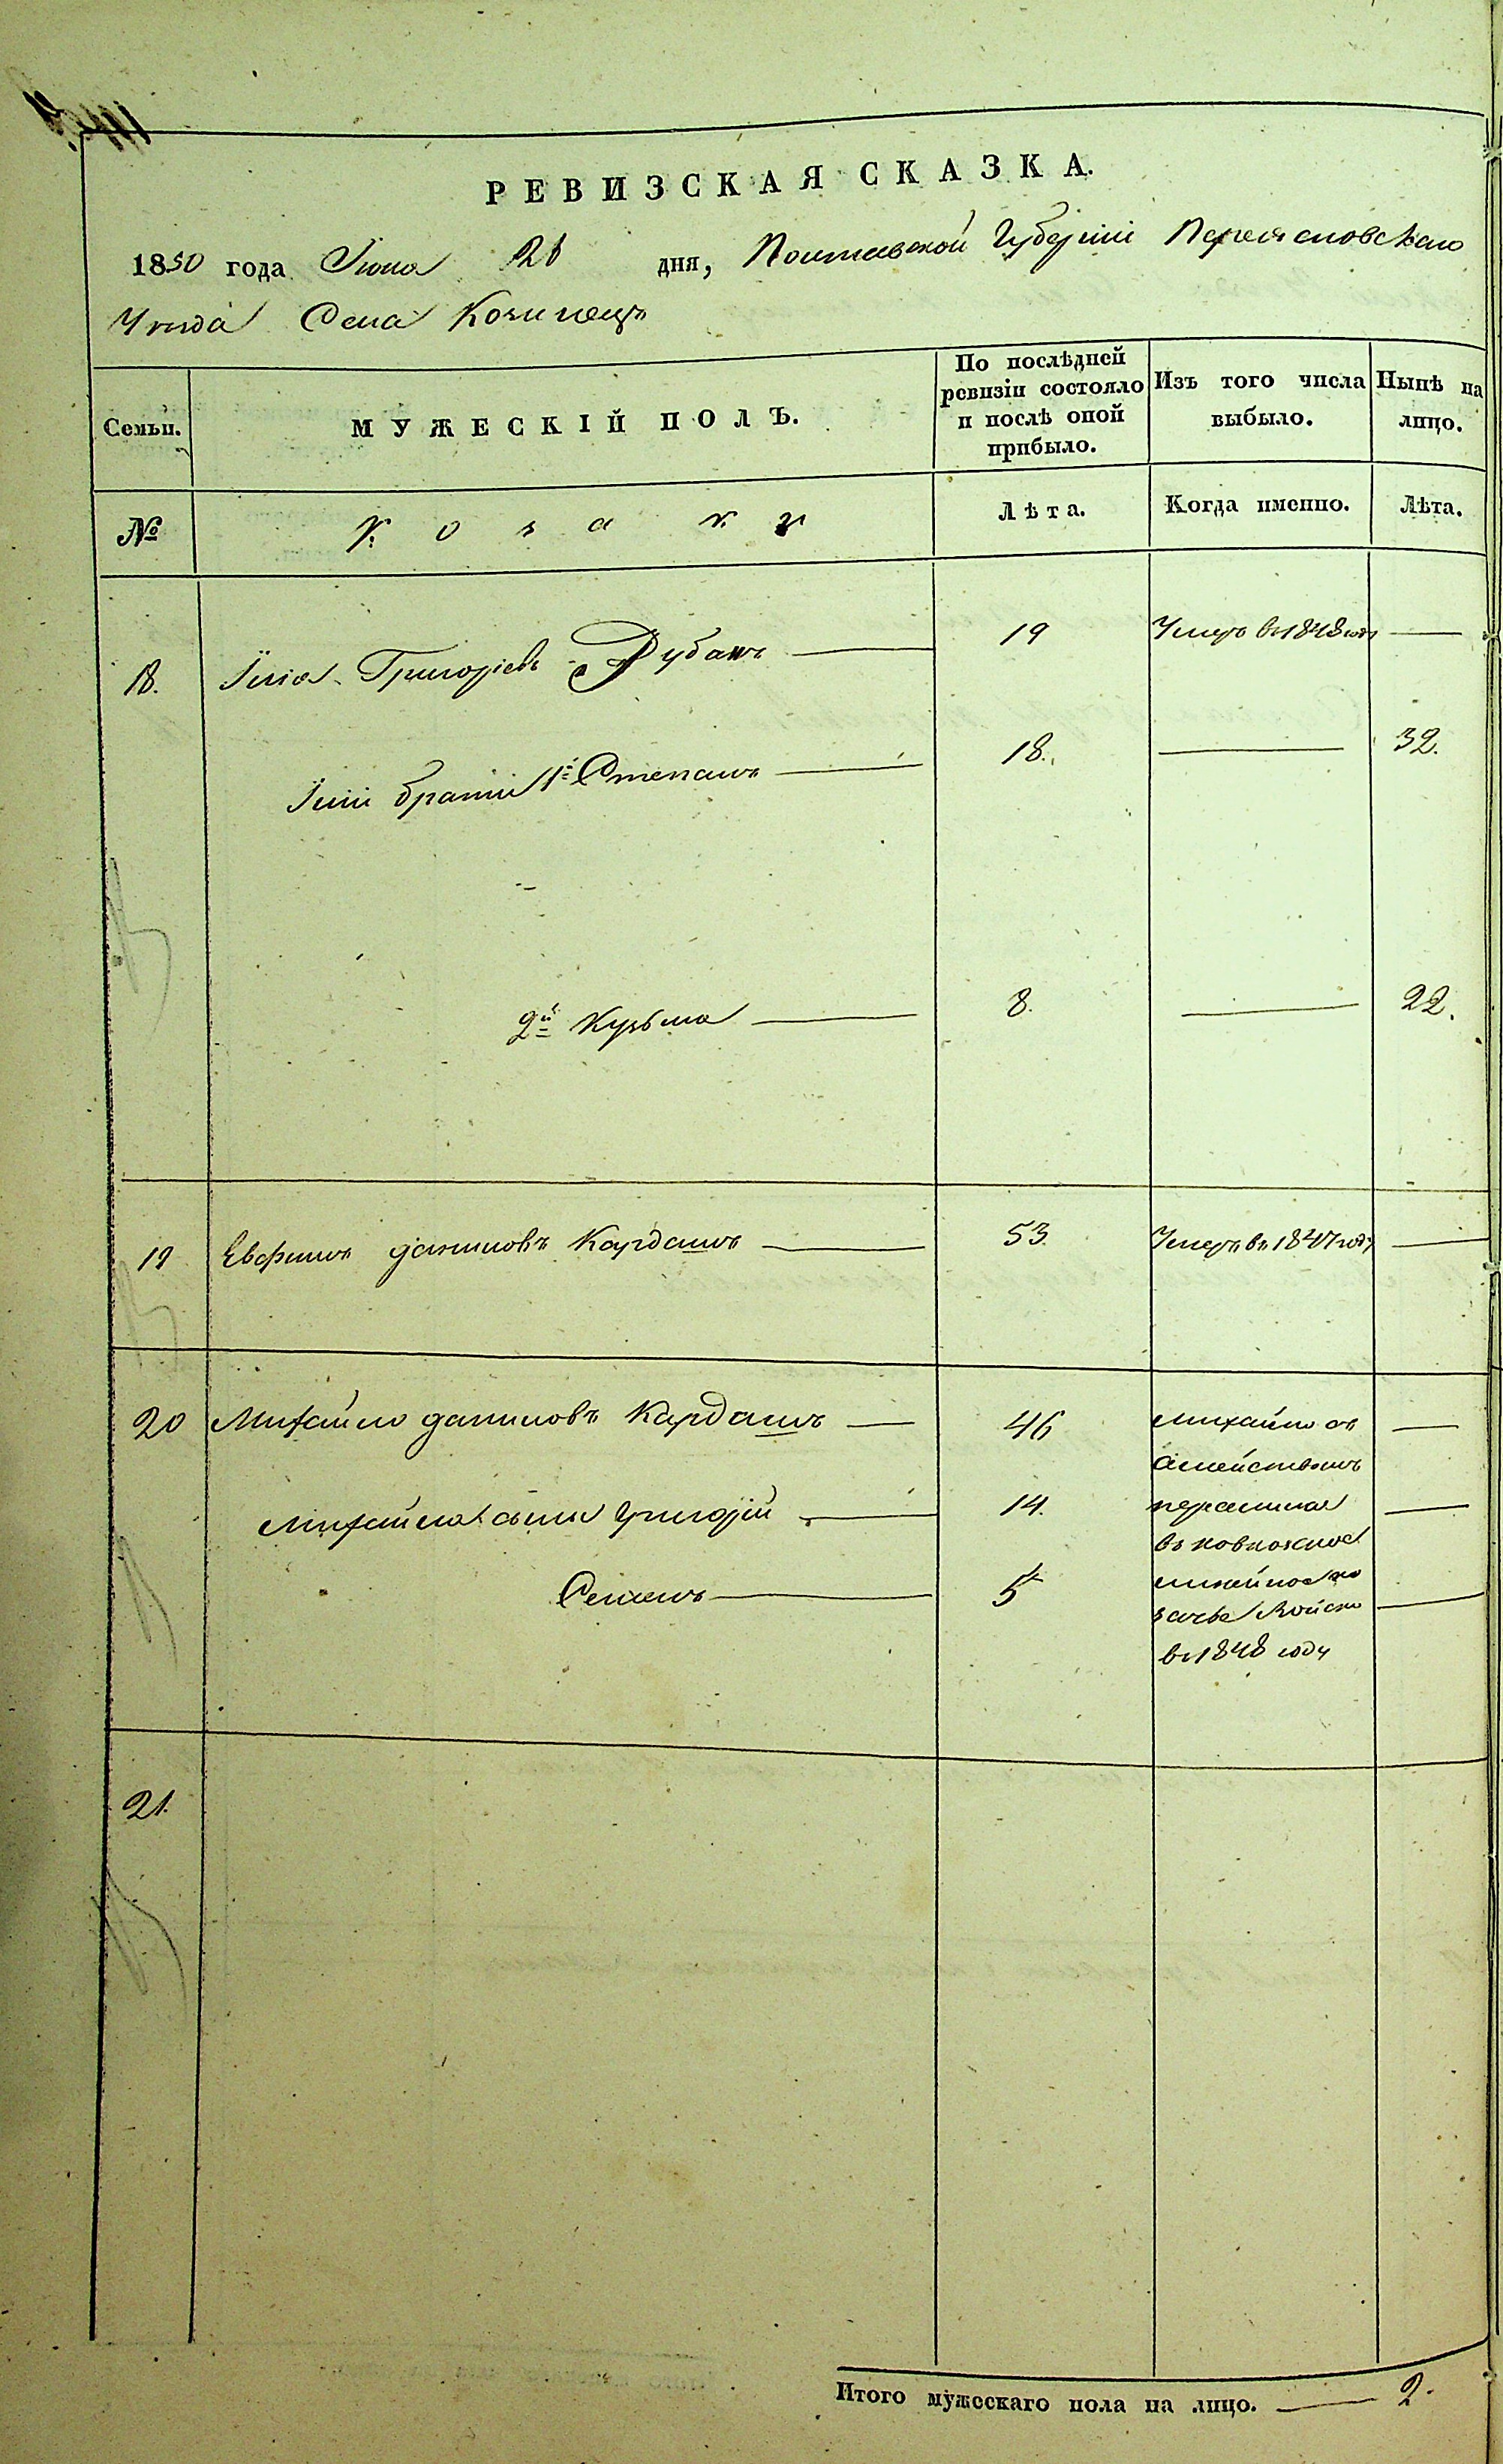 РЕВИЗСКАЯ СКАЗКА.
1850 года Iюня 21 дня, Полтавской Губернiи Переяславского
Уезда Села
Семьи. МУЖЕСКІЙ ПОЛЪ. По послѣдней ревизіи состояло и послѣ оной прибыло. Изъ того числа выбыло. Нынѣ на лицо.
№ Козаки Лѣта. Когда именно. Лѣта.
18. Илiя Григорiевъ Рубанъ 19 Умеръ въ 1848 году
Илiи братiя 1й Степанъ 18. 32.
2й Кузьма 8. 22.
19 Евфимъ Даниловъ Кардашъ 53 Умеръ въ 1847 году
20 Михайло Даниловъ Кардашъ 46 Михайло съ
семействомъ
Михайла сыны Григорiй 14. перечислен
въ
Семенъ 5 линейное ка
зачье Войско
въ 1848 году
21.
Итого мужескаго пола на лицо. 2.